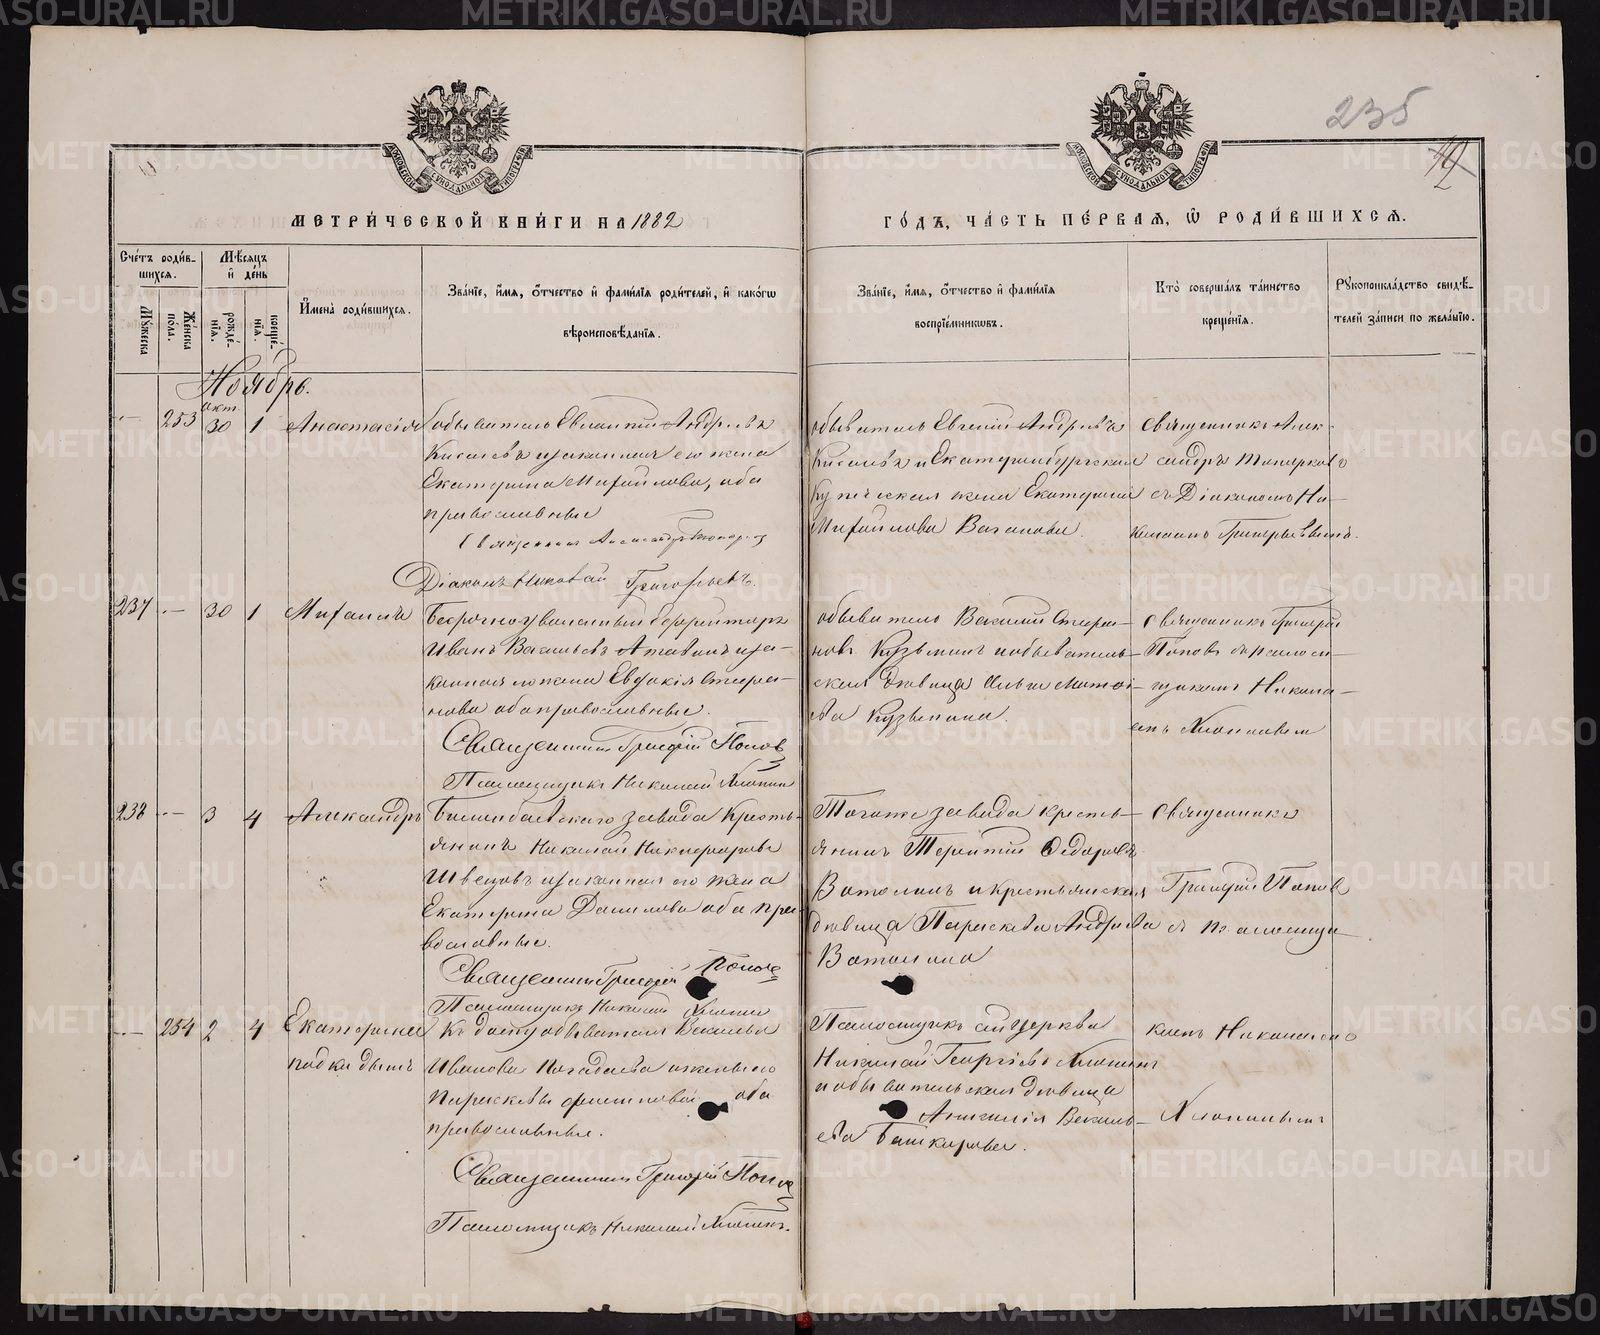 235
12
МЕТРИ́ЧЕСКОЙ КНИ́ГИ НА 1882
ГО́ДЪ, ЧА́СТЬ ПЕ́РВАЯ, Ѿ РОДИ́ВШИХСѦ.
Сче́тъ роди́в-
шихся.
Мѣ́сяцъ
и де́нь
Му́жеска
Же́нска
по́ла.
рожде́-
нїя.
креще́-
нїя.
И҆мена̀ роди́вшихся.
Зва́нїе, и҆́мя, ѻ҆́тчество и҆ фами́лїя роди́телей, и҆ како́гѡ
вѣроисповѣ́данїя.
Зва́нїе, и҆́мя, ѻ҆́тчество и҆ фами́лїя
воспрїе́мниковъ.
Кто̀ соверша́лъ та́инство
креще́нїя.
Рꙋкоприкла́дство свидѣ́-
телей за́писи по жела́нїю.
Ноябрь.
окт.
253 30 1 Анастасія
обыватель Андреевъ
Киселевъ и законная его жена
Екатерина Михайлова, оба
православные
Священникъ Александръ Топорков
Діаконъ Николай Григорьевъ.
обыватель Евгеній Андреевъ
Киселевъ и Екатеринбургская
Купеческая жена Екатерина
Михайлова Ваганова.
Священникъ Алек-
сандръ Топорковъ
съ Діакономъ Ни-
колаемъ Григорьевымъ.
237 30 1 Михаилъ
Безсрочноуволенный Ефрейторъ
Иванъ Васильевъ и за-
конная его жена Евдокія Стефа-
нова оба православные.
Священникъ Григорій Попов
Псаломщикъ Николай Хлопин
обыватель Василій Стефа-
новъ Кузьминъ и обыватель-
ская девица Матве-
ева Кузьмина.
Священникъ Григорій
Поповъ съ псалом-
щикомъ Никола-
емъ Хлопинымъ
238 3 4 Александръ
Билимбаевскаго завода Кресть-
янинъ Николай Никифоровъ
Швецовъ и законная его жена
Екатерина Данилова оба пра-
вославные.
Священникъ Григорій Попов
Псаломщикъ Николай Хлопин
Тогоже завода кресть-
янинъ Терентій Федоровъ
Ватолинъ и крестьянская
девица Параскева Андреева
Ватолина
Священникъ
Григорій Попов
съ псаломщи-
комъ Николаемъ
Хлопинымъ
254 2 4 Екатерина
подкидышъ
Къ дому обывателя Василья
Иванова Погадаева и жены его
Параскевы оба
православные.
Священникъ Григорій Попов
Псаломщикъ Николай Хлопинъ.
Псаломщикъ сей церкви
Николай Георгіевъ Хлопинъ
и обывательская девица
Васильева
Башкирова.